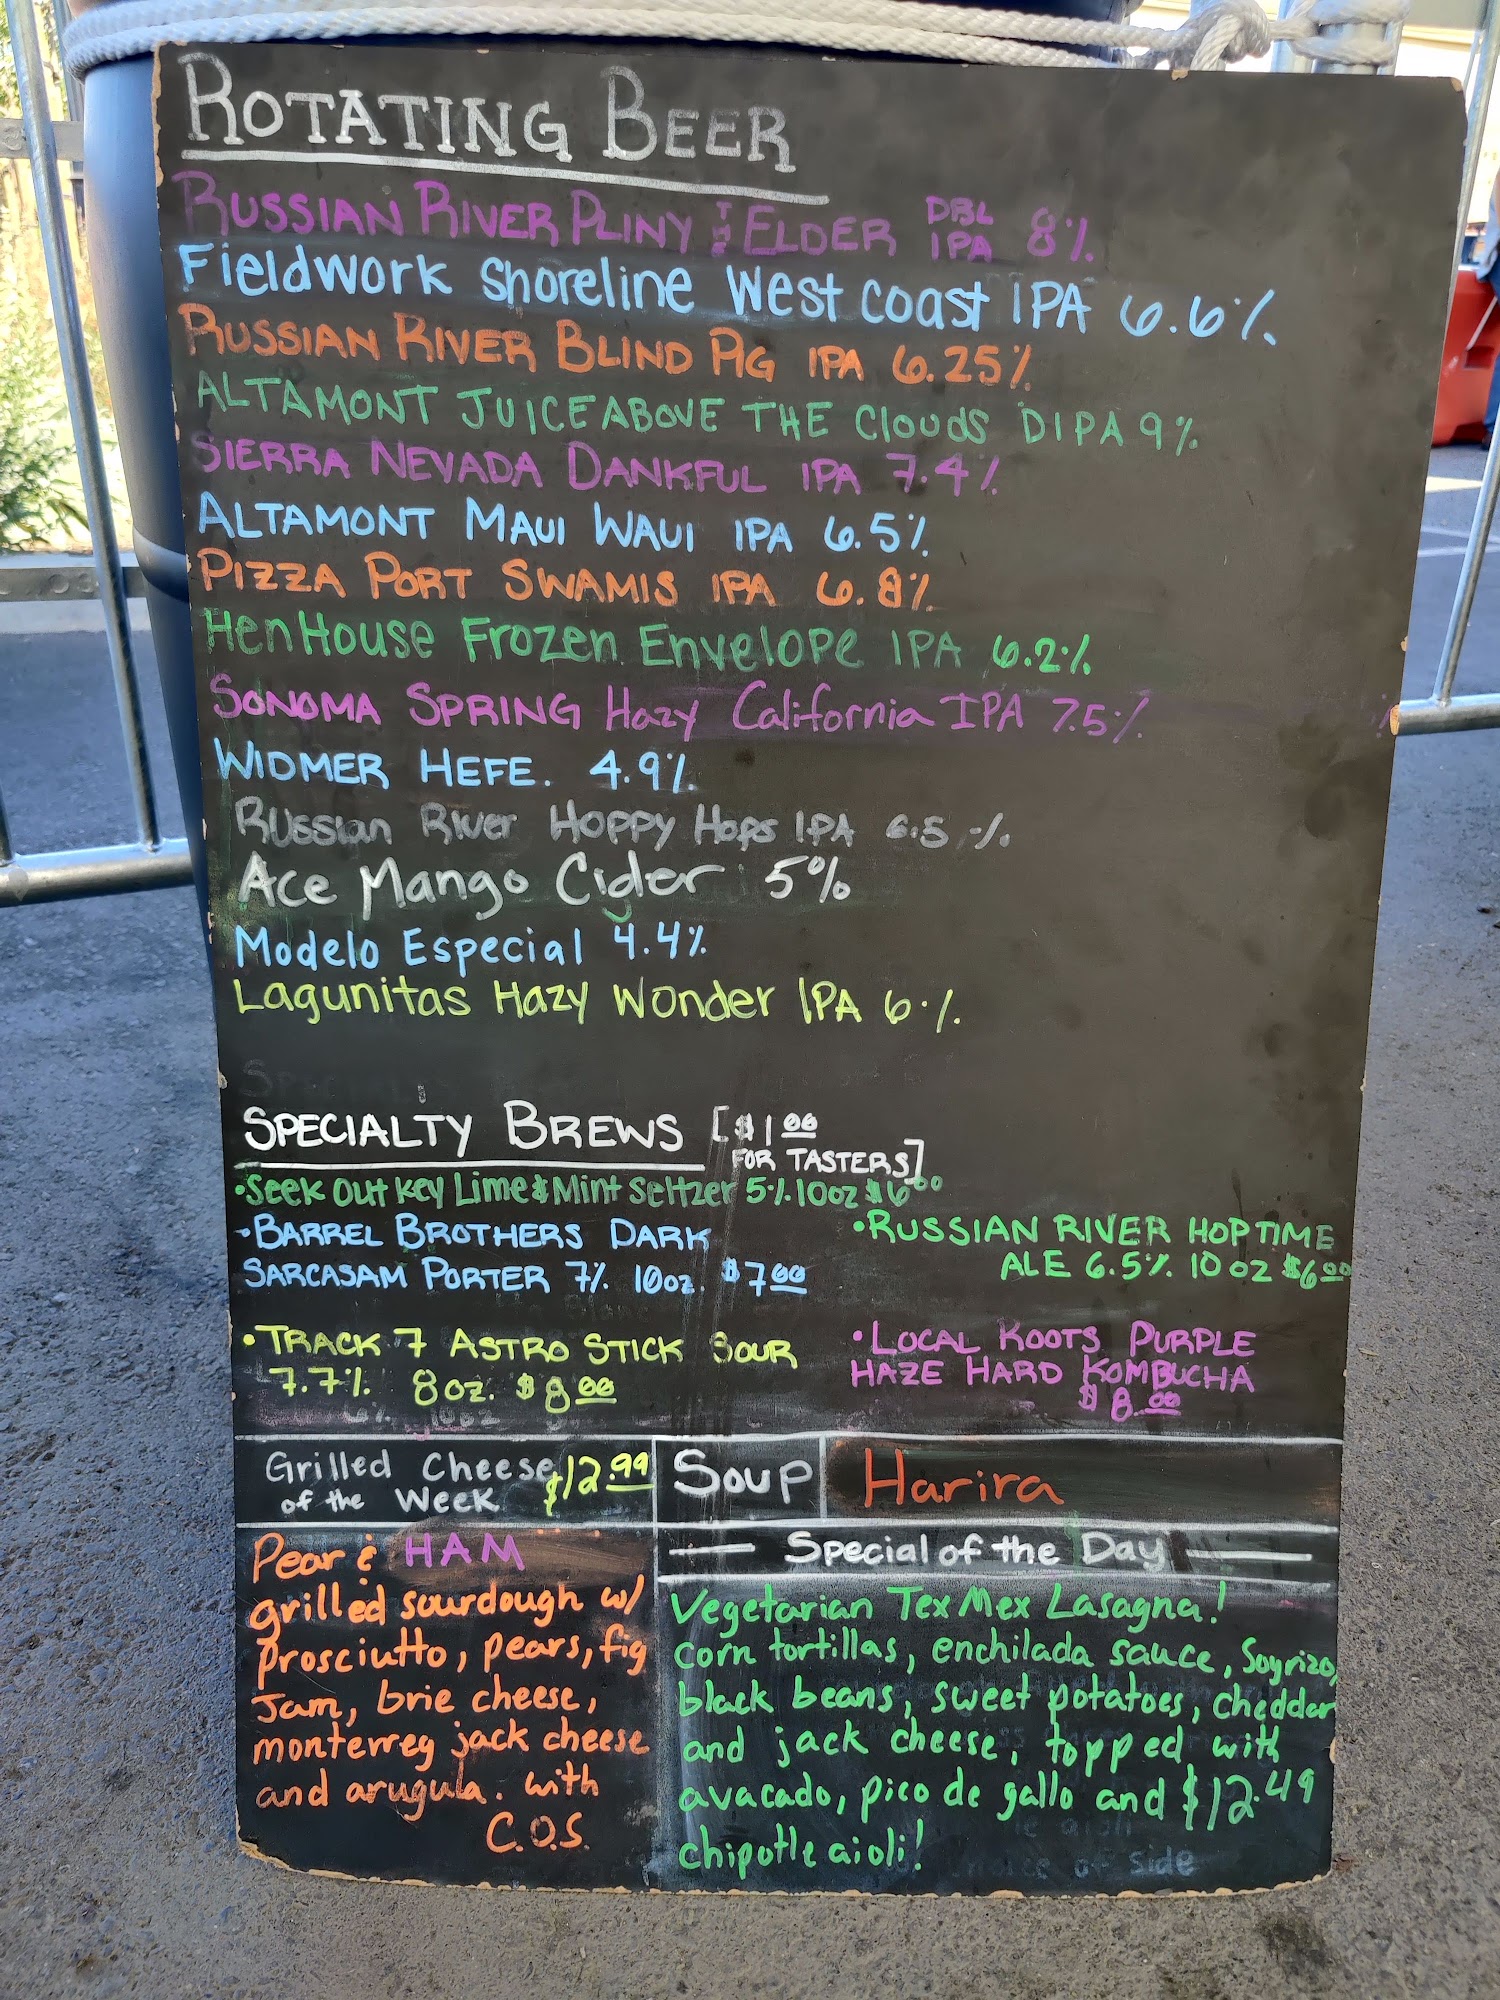 ROTATING BEER
RUSSIAN RIVER PLINY THE ELDER DBL IPA 8%
Fieldwork Shoreline West Coast IPA 6.6%
RUSSIAN RIVER BLIND PIG IPA 6.25%
ALTAMONT JUICE ABOVE THE CLOUDS DIPA 9%
SIERRA NEVADA DANKFUL IPA 7.4%
ALTAMONT MAUI WAUI IPA 6.5%
PIZZA PORT SWAMIS IPA 6.8%
HenHouse Frozen Envelope IPA 6.2%
SONOMA SPRING Hazy California IPA 7.5%
WIDMER HEFE. 4.9%
Russian River Hoppy Hops IPA 6.5%
Ace Mango Cider 5%
Modelo Especial 4.4%
Lagunitas Hazy Wonder IPA 6%
SPECIALTY BREWS [$1.00
FOR TASTERS]
•Seek Out Key Lime & Mint Seltzer 5% 10oz $6.00
•BARREL BROTHERS DARK
SARCASAM PORTER 7% 10oz. $7.00
•RUSSIAN RIVER HOPTIME
ALE 6.5% 10 oz $6.00
•TRACK 7 ASTRO STICK SOUR
7.7% 8oz. $8.00
•LOCAL ROOTS PURPLE
HAZE HARD KOMBUCHA
$8.00
Grilled Cheese
of the Week $12.99
Soup Harira
Pear & HAM
grilled sourdough w/
prosciutto, pears, fig
Jam, brie cheese,
monterrey jack cheese
and arugula. with
C.O.S.
Special of the Day
Vegetarian Tex Mex Lasagna!
corn tortillas, enchilada sauce, Soyrizo,
black beans, sweet potatoes, cheddar
and jack cheese, topped with
avacado, pico de gallo and $12.49
chipotle aioli!